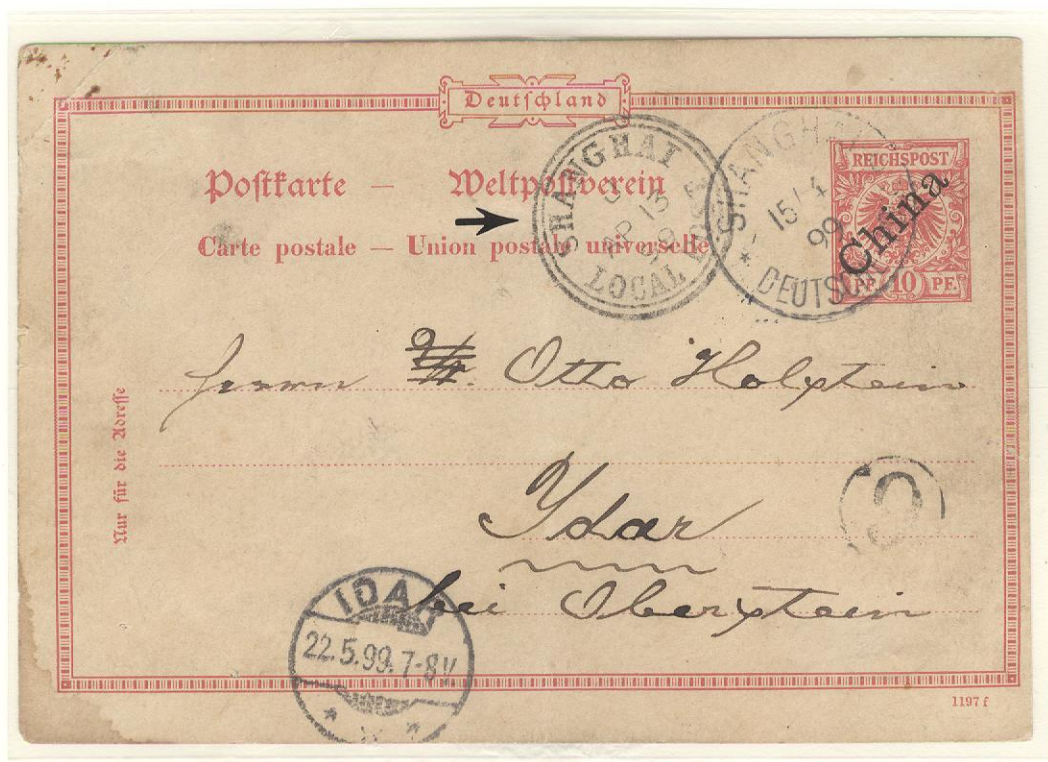 Deutschland
Postkarte — Weltpostverein
Carte postale — Union postale universelle
SHANGHAI
J
AP 13
99
LOCAL POST
SHANGHAI
15/4
99
* DEUTSCHE
REICHSPOST
China
PF. 10 PF.
Herrn Otto Holstein
Idar
bei Oberstein
Nur für die Adresse
IDAR
22.5.99.7-8V
* *
1197 f